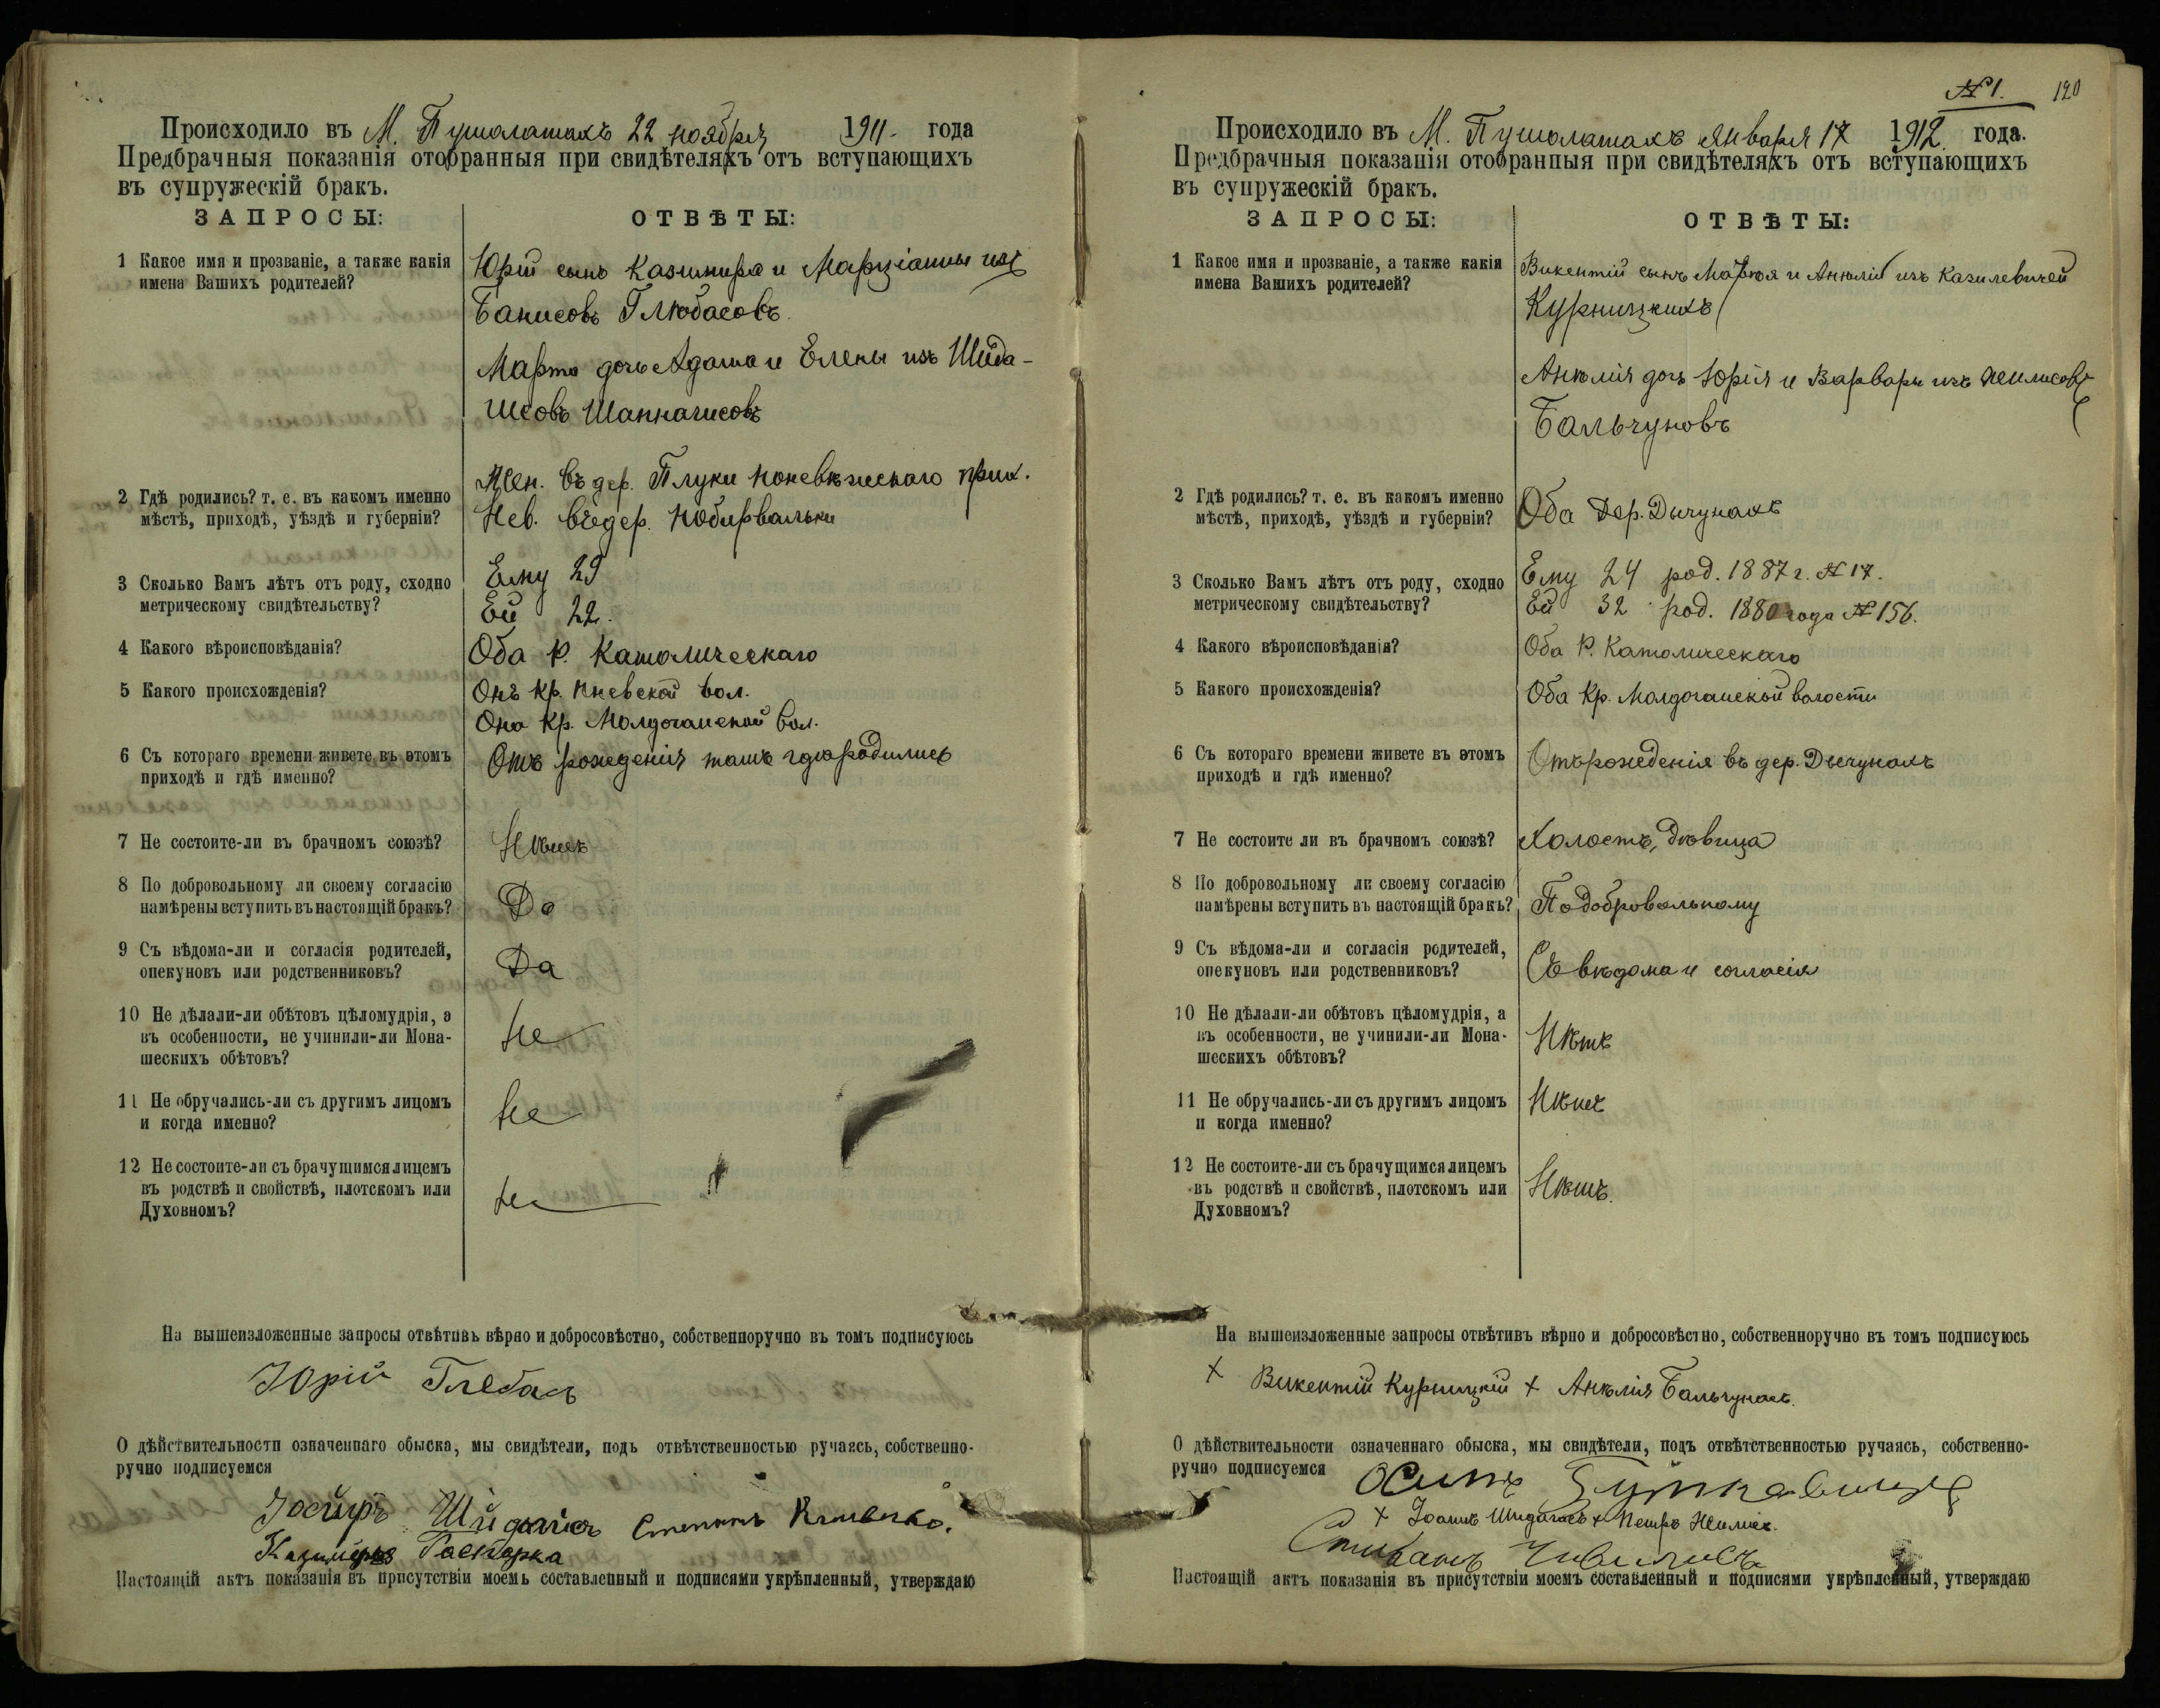 Происходило въ М. Пушолатахъ 22 ноября 1911. года
Предбрачныя показанія отобранныя при свидѣтеляхъ отъ вступающихъ
въ супружескій бракъ.
ЗАПРОСЫ: ОТВѢТЫ:
1 Какое имя и прозваніе, а также какія
имена Вашихъ родителей?
Юрій сынъ Казимира и Марціанны изъ
Банисовъ Глюбасовъ.
Марта дочь Адама и Елены изъ Шида-
гисовъ
2 Гдѣ родились? т. е. въ какомъ именно
мѣстѣ, приходѣ, уѣздѣ и губерніи?
Жен. въ дер. Плуки поневѣжскаго прих.
Нев. въ дер.
3 Сколько Вамъ лѣтъ отъ роду, сходно
метрическому свидѣтельству?
Ему 29
Ей 22.
4 Какого вѣроисповѣданія?
Оба Р. Католическаго
5 Какого происхожденія?
Онъ кр. вол.
Она кр. вол.
6 Съ котораго времени живете въ этомъ
приходѣ и гдѣ именно?
Отъ рожденія тамъ гдѣ родились
7 Не состоите-ли въ брачномъ союзѣ?
Нѣтъ
8 По добровольному ли своему согласію
намѣрены вступить въ настоящій бракъ?
Да
9 Съ вѣдома-ли и согласія родителей,
опекуновъ или родственниковъ?
Да
10 Не дѣлали-ли обѣтовъ цѣломудрія, а
въ особенности, не учинили-ли Мона-
шескихъ обѣтовъ?
Не
11 Не обручались-ли съ другимъ лицомъ
и когда именно?
Не
12 Не состоите-ли съ брачущимся лицемъ
въ родствѣ и свойствѣ, плотскомъ или
Духовномъ?
Не
На вышеизложенные запросы отвѣтивъ вѣрно и добросовѣстно, собственноручно въ томъ подписуюсь
Юрій Глебасъ
О дѣйствительности означеннаго обыска, мы свидѣтели, подъ отвѣтственностью ручаясь, собственно-
ручно подписуемся
Степанъ
Настоящій актъ показанія въ присутствіи моемъ составленный и подписями укрѣпленный, утверждаю
№ 1. 120
Происходило въ М. Пушолатахъ Января 17 1912. года.
Предбрачныя показанія отобранныя при свидѣтеляхъ отъ вступающихъ
въ супружескій бракъ.
ЗАПРОСЫ: ОТВѢТЫ:
1 Какое имя и прозваніе, а также какія
имена Вашихъ родителей?
Викентій сынъ и Анѣліи изъ Казилевичей
Курницкихъ
Анѣлія дочь Юрія и Варвары изъ
Бальчуновъ
2 Гдѣ родились? т. е. въ какомъ именно
мѣстѣ, приходѣ, уѣздѣ и губерніи?
Оба Дер. Дычунахъ
3 Сколько Вамъ лѣтъ отъ роду, сходно
метрическому свидѣтельству?
Ему 24 род. 1887 г. № 17.
Ей 32 род. 1880 года № 156.
4 Какого вѣроисповѣданія?
Оба Р. Католическаго
5 Какого происхожденія?
Оба Кр. волости
6 Съ котораго времени живете въ этомъ
приходѣ и гдѣ именно?
Отъ рожденія въ дер. Дычунахъ
7 Не состоите ли въ брачномъ союзѣ?
Холостъ, дѣвица
8 По добровольному ли своему согласію
намѣрены вступить въ настоящій бракъ?
По добровольному
9 Съ вѣдома-ли и согласія родителей,
опекуновъ или родственниковъ?
Съ вѣдома и согласія
10 Не дѣлали-ли обѣтовъ цѣломудрія, а
въ особенности, не учинили-ли Мона-
шескихъ обѣтовъ?
Нѣтъ
11 Не обручались-ли съ другимъ лицомъ
и когда именно?
Нѣтъ
12 Не состоите-ли съ брачущимся лицемъ
въ родствѣ и свойствѣ, плотскомъ или
Духовномъ?
Нѣтъ.
На вышеизложенные запросы отвѣтивъ вѣрно и добросовѣстно, собственноручно въ томъ подписуюсь
+ Викентій Курницкій + Анѣлія Бальчунасъ.
О дѣйствительности означеннаго обыска, мы свидѣтели, подъ отвѣтственностью ручаясь, собственно-
ручно подписуемся
Осипъ
+ Іоаннъ Шидагисъ + Петръ
Настоящій актъ показанія въ присутствіи моемъ составленный и подписями укрѣпленный, утверждаю